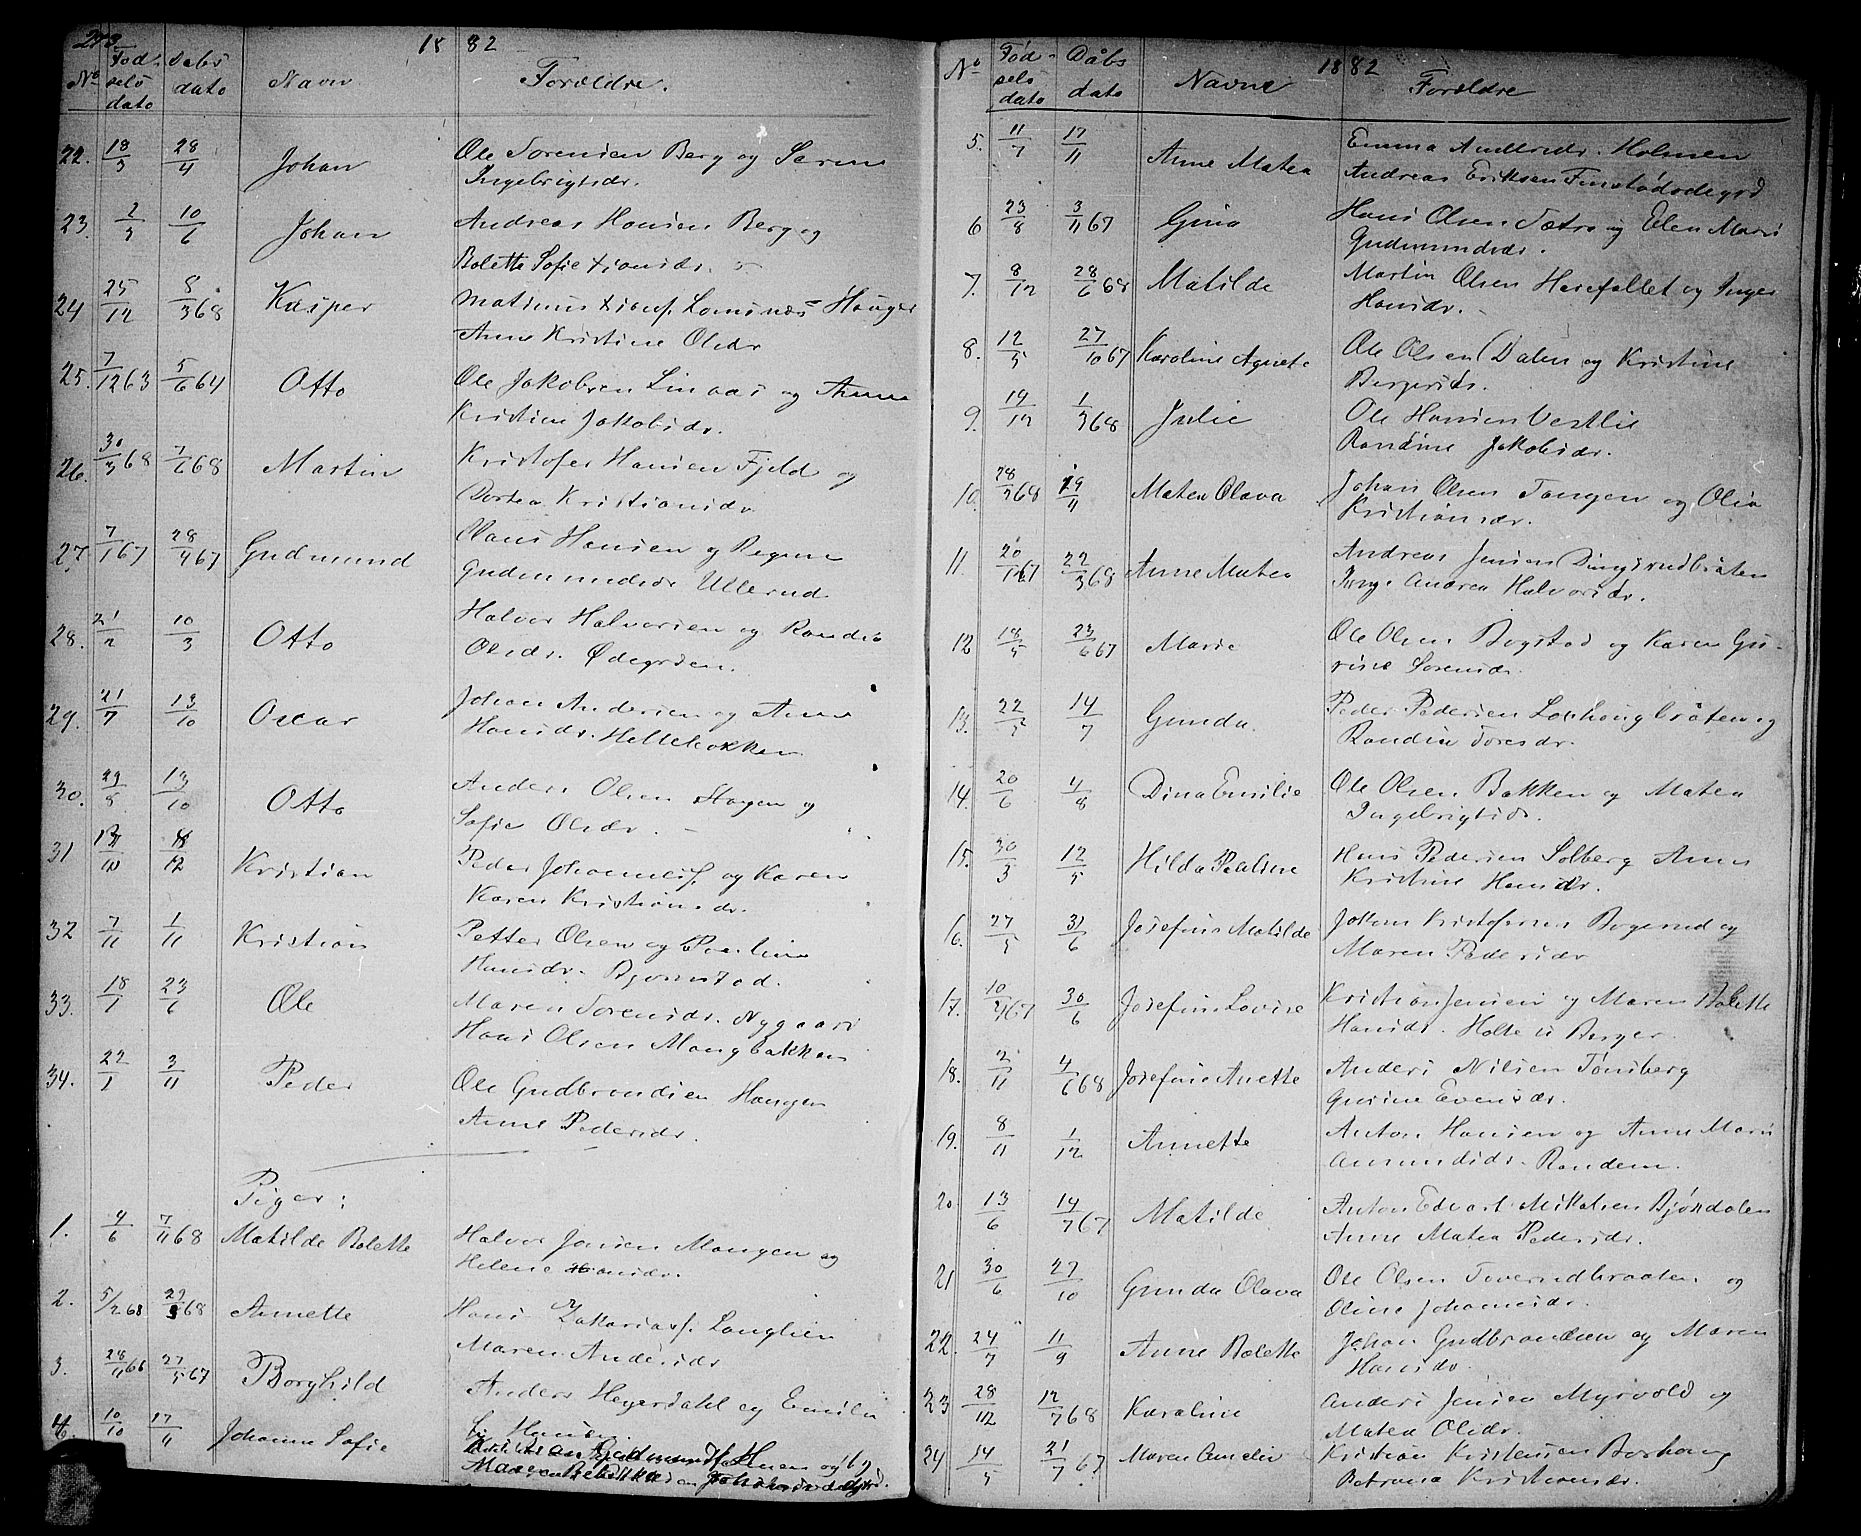 273
18 82
No Fødselsdato Dabsdato Navn Forældre.
22. 18/3 28/4 Johan Ole Sorensen Berg og Karen
Ingebrigtsdr.
23. 2/3 10/6 Johan Andreas Hansen Berg og
Bolette Sofie Hansdr.
24 25/12 8/3 68 Kasper Matinus
Anne Kristine Olsdr
25. 7/12 63 5/6 64 Otto Ole Jakobsen Linaas og Anne
Kristine Jakobsdr.
26. 30/3 68 7/6 68 Martin Kristofer Hansen Fjeld og
Dortea Kristiansdr
27. 7/1 67 28/4 67 Gudmund Claus Hansen og Regine
Gudmundsdr Ullerud
28. 21/2 10/3 Otto Halvor Halvorsen og Randi
Olsdr. Ødegrden.
29. 21/7 13/10 Oscar Johan Andersen og Anne
Hansdr. Hellebakken
30. 29/8 13/10 Otto Anders Olsen Hagen og
Sofie Olsdr.
31 Kristian Peder Johannesf. og Karen
Karen Kristiansdr.
32 7/11 1/11 Kristian Petter Olsen og Pauline
Hansdr. Bjørnstad.
33. 18/1 23/6 Ole Maren Sorensdr. Nygaard
Hans Olsen Mangbakken
34. 22/1 3/11 Peder Ole Gudbrandsen Haugen
Anne Pedersdr.
Piger:
1. 4/6 7/11 68 Matilde Bolette Halvor Jensen Mangen og
Helene Hansdr.
2. 5/2 68 29/3 68 Annette Hans Zakariasf. Langlien
Maren Andersdr
3. 28/11 66 27/5 67 Borghild Anders Heyerdahl og Emilie
f. Hansen
4. 10/10 17/11 Johanne Sofie Kristian Gudmundsf.
Maren
No Fødselsdato Dåbsdato Navne 1882 Forældre
5. 11/7 17/11 Anne Matea Emma Andersdr. Holmen
Andreas Eriksen Finstadødegrd
6 23/8 3/11 67 Gina Hans Olsen Sætra og Elen Marie
Gudmundsdr.
7. 8/12 28/6 68 Matilde Martin Olsen Harefallet og Inger
Hansdr.
8. 12/5 27/10 67 Karoline Agnete Ole Olsen Dalen og Kristine
Bergersdr.
9. 19/12 1/3 68 Julie Ole Hansen Vestlie
Randine Jakobsdr.
10. 28/3 68 29/11 Matea Olava Johan Olsen Tangen og Olia
Kristiansdr.
11. 20/1 67 22/3 68 Anne Matea Andreas Jensen Dingsrudbråten
Inge Andrea Halvorsdr.
12 18/5 23/6 67 Marie Ole Olsen Bogstad og Karen Gu-
rine Sorensdr
13. 22/5 14/7 Gunda. Peder Pedersen og
Randine Toresdr.
14. 20/6 4/8 Dina Emilie Ole Olsen Bakken og Matea
Ingebrigtsdr.
15. 30/3 12/5 Hilda Pauline Hans Pedersen Solberg Anne
Kristine Hansdr.
16. 27/5 31/6 Josefine Matilde Johan Kristofersen Bogerud og
Maren Pedersdr
17. 10/4 67 30/6 Josefine Lovise Kristian Jensen og Maren Bolette
Hansdr. Holte u Berger.
18. 2/11 4/6 68 Josefine Anette Anders Nilsen Tønsberg
Gurine Evensdr.
19. 8/11 1/12 Annette Anton Hansen og Anne Marie
Amundsdr. Randem.
20. 13/6 14/7 67 Matilde Anton Edvart Mikalsen Bjørdalen
Anne Matea Pedersdr.
21 30/6 27/10 Gunda Olava Ole Olsen Toverudbraaten og
Oline Johannesdr.
22. 24/7 11/9 Anne Bolette Johan Gudbrandsen og Maren
Hansdr.
23 28/12 12/7 68 Karoline Anders Jensen Myrvold og
Matea Olsdr.
24 14/5 21/7 67 Maren Amelie Kristian Kristensen Boshaug
Petrana Kristiansdr.